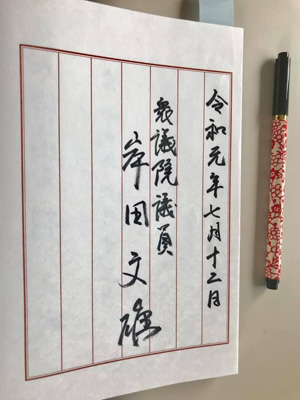 令和元年七月十二日
衆議院議員
岸田文雄